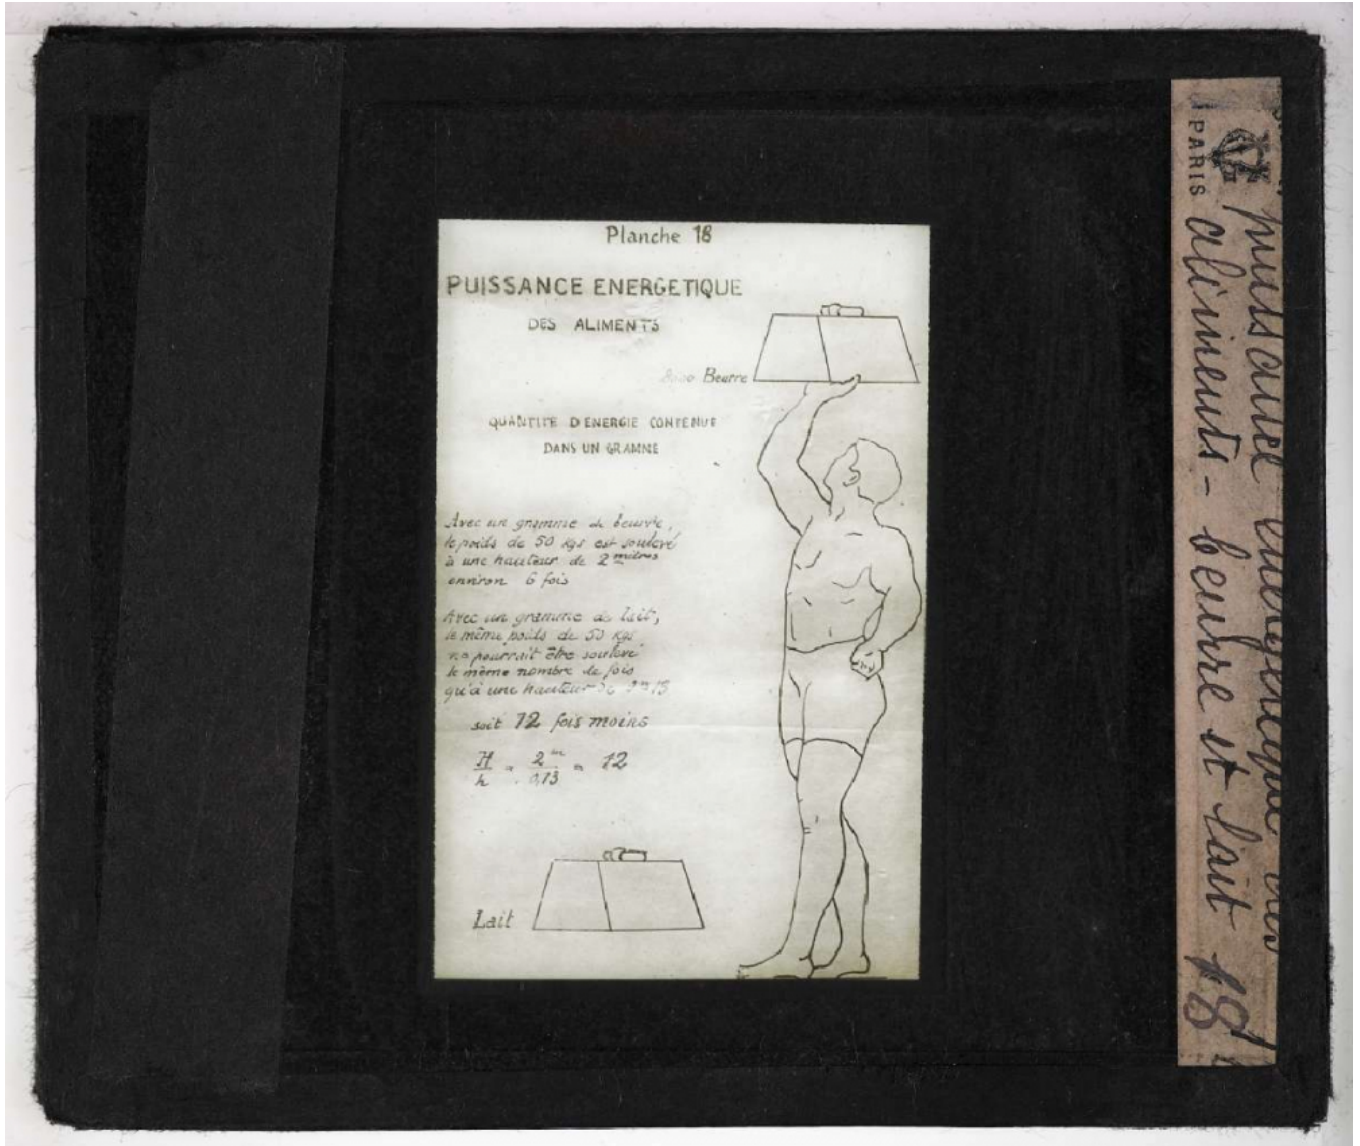 Planche 18
PUISSANCE ENERGETIQUE
DES ALIMENTS
Beurre
QUANTITE D'ENERGIE CONTENUE
DANS UN GRAMME
Avec un gramme de beurre,
le poids de 50 kgs est soulevé
à une hauteur de 2 mètres
environ 6 fois
Avec un gramme de lait,
le même poids de 50 kgs
ne pourrait être soulevé
le même nombre de fois
qu'à une hauteur de
soit 12 fois moins
H/h = 2m/0,13 = 12
Lait
puissance energetique des
PARIS
aliments - beurre et lait 18